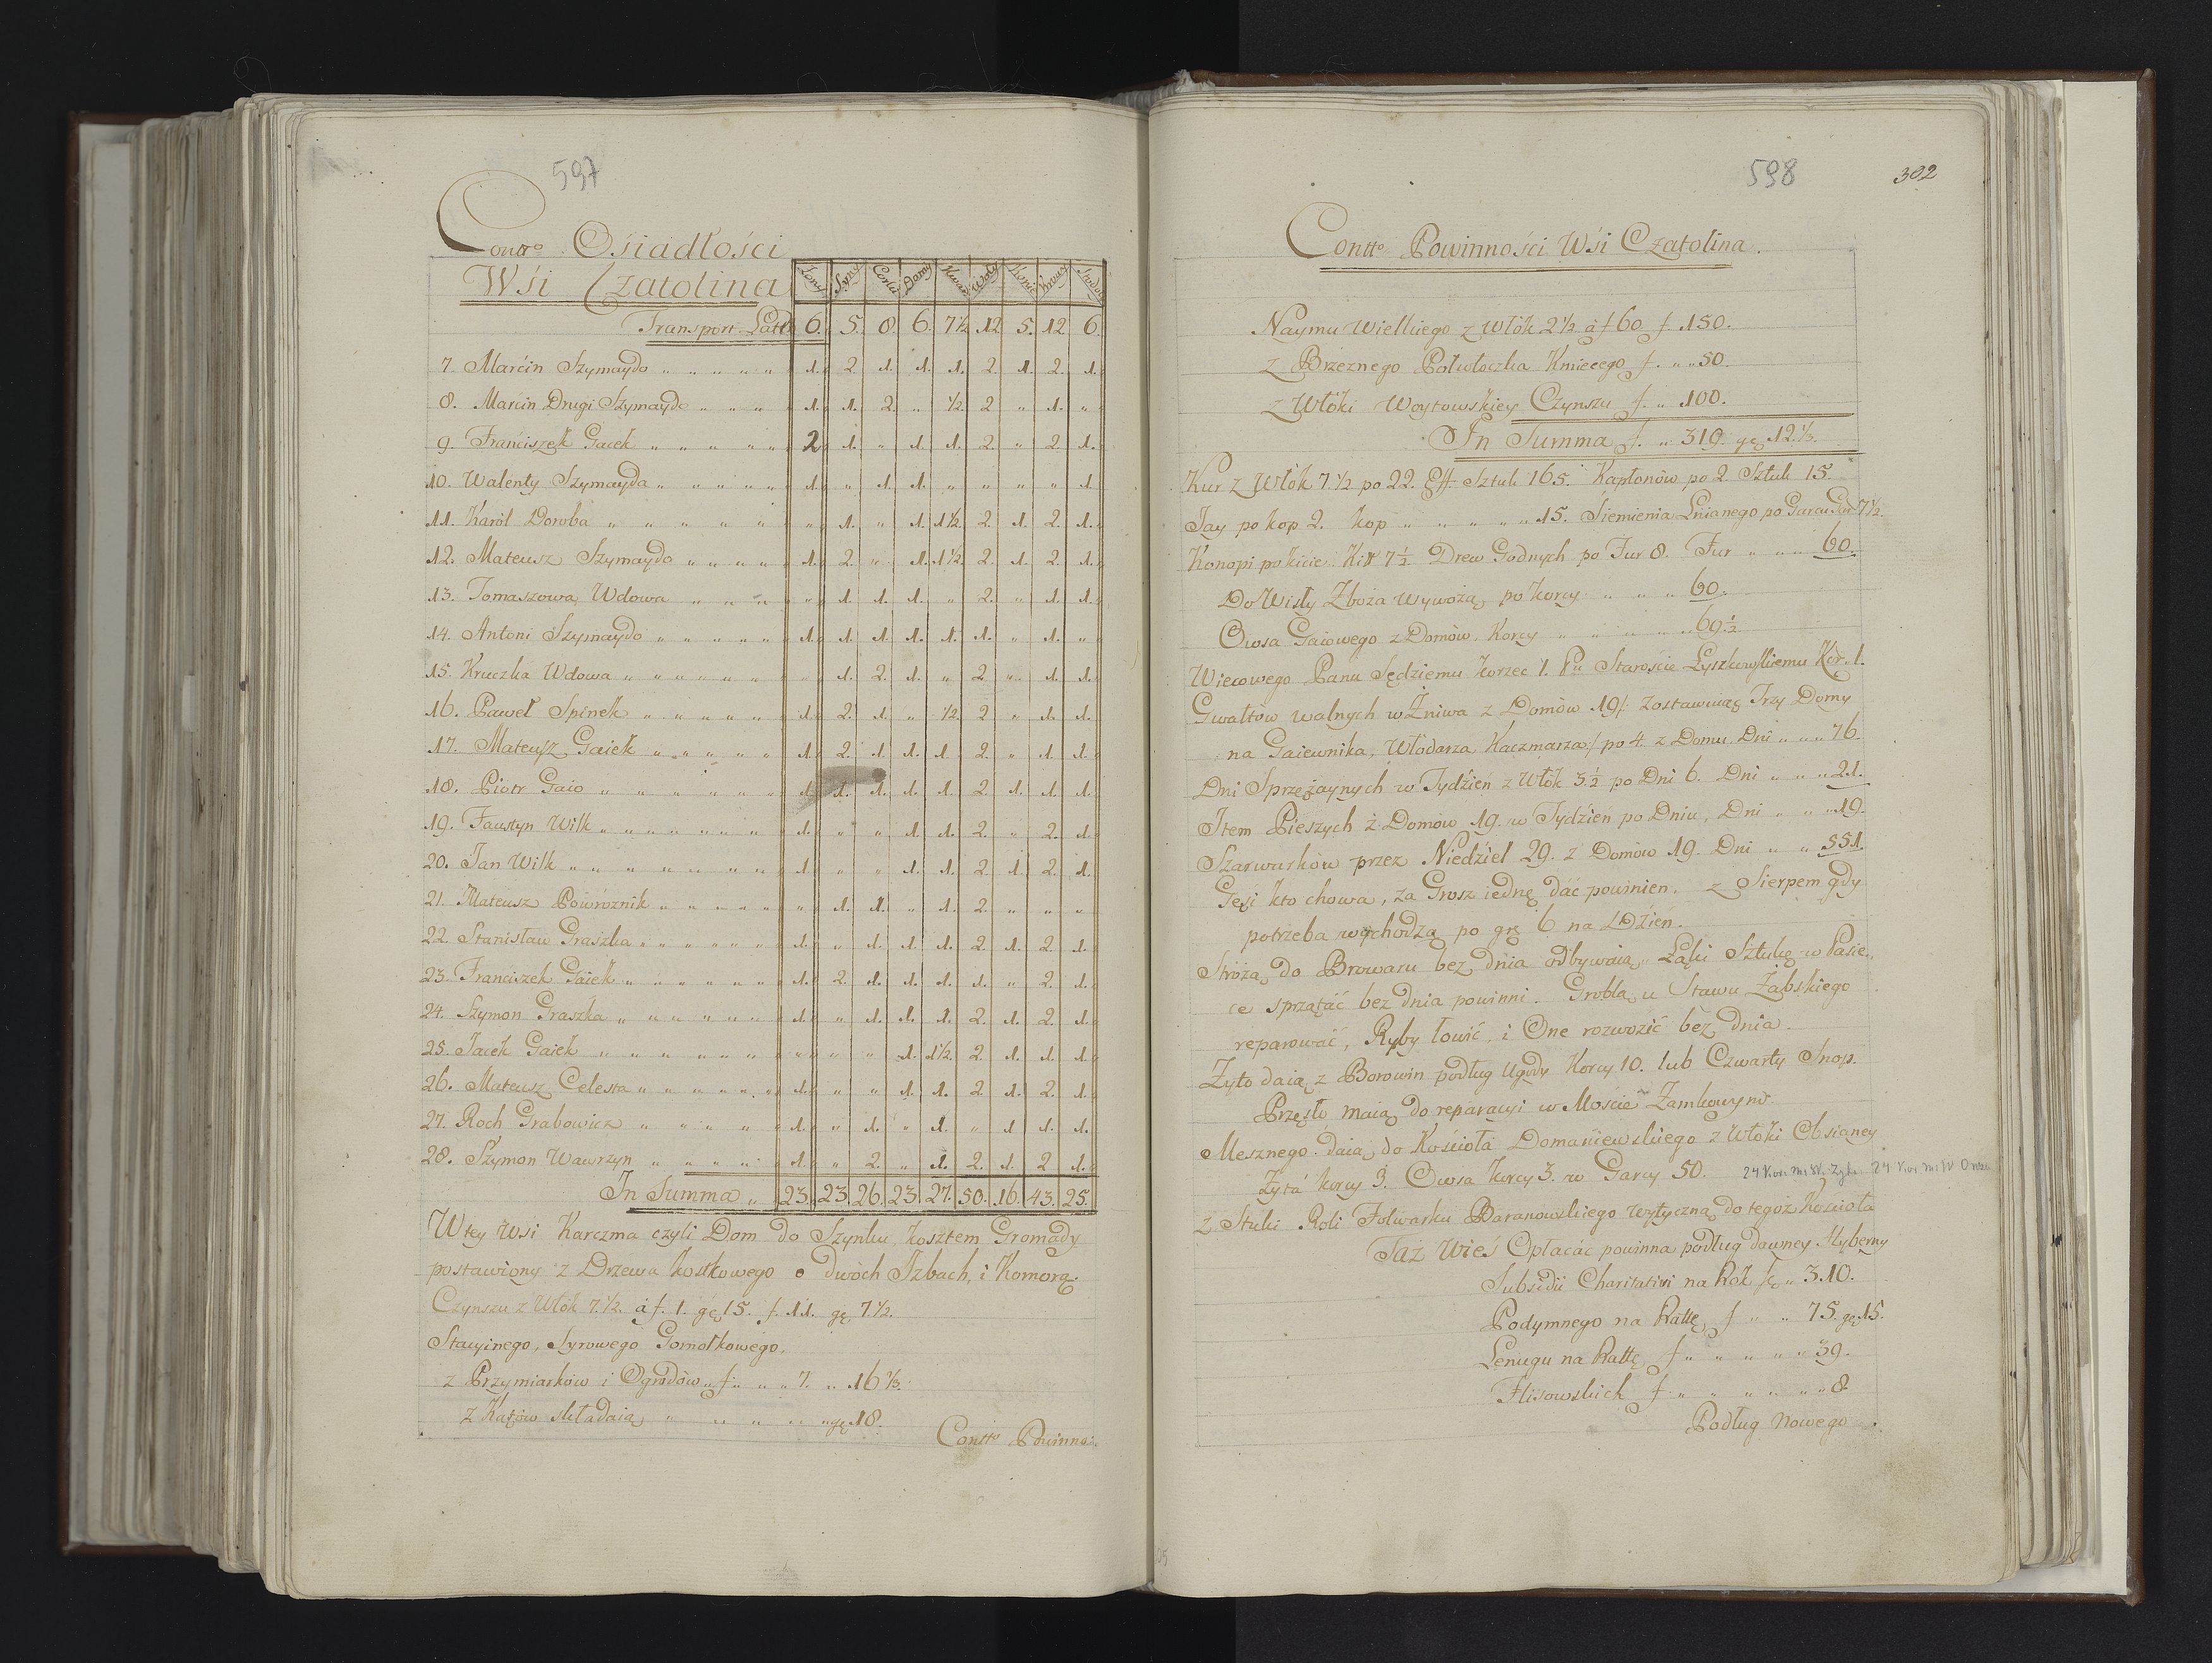 597
Contto Osiadłości
Wśi Czatolina
Żony Syny Corki Domy Kwart Woły Konie Krowy Stodoły
Transport Latt 6. 5. 8. 6. 7½ 12 5. 12 6.
7. Marćin Szymaydo „ „ „ „ „ 1. 2 1. 1. 1. 2. 1. 2. 1.
8. Marcin Drugi Szymaydo „ „ „ 1. 1. 2. „ ½ 2 „ 1. „
9. Franćiszek Gacek „ „ „ „ „ 2 1. „ 1. 1. 2. „ 2. 1.
10. Walenty Szymayda „ „ „ „ „ 1. „ 1. 1. „ „ „ „ 1.
11. Karól Doroba „ „ „ „ „ „ 1. „ 1. 1½ 2. 1. 2. 1.
12. Mateusz Szymaydo „ „ „ „ 1. 2. „ 1. 1½ 2. 1. 2. 1.
13. Tomaszowa Wdowa „ „ „ „ 1. 1. 1. „ 2. „ 1. 1.
14. Antoni Szymaydo „ „ „ „ „ 1. 1. 1. 1. 1. 1. „ 1. „
15. Kruczka Wdowa „ „ „ „ „ „ „ 1. 2. 1. „ 2 „ 1. 1.
16. Paweł Spinek „ „ „ „ „ 1. 2. 1. „ ½ 2 „ 1. 1.
17. Mateusz Gaiek „ „ „ „ „ 1. 2. 1. 1. 1. 2. „ 1. 1.
18. Piotr Gaio „ „ „ „ „ „ 1. 1. 1. 1. 1. 2. 1. 1. 1.
19. Faustyn Wilk „ „ „ „ „ „ „ 1. „ „ 1. 1. 2. „ 2. 1.
20. Jan Wilk „ „ „ „ „ „ „ „ 1. „ „ 1. 1. 2. 1. 2. 1.
21. Mateusz Powroznik „ „ „ „ „ „ 1. 1. „ 1. 2. „ „ „
22. Stanisław Graszka „ „ „ „ „ „ 1. „ 1. 1. 1. 2. 1. 2. 1.
23. Franciszek Gaiek „ „ „ „ „ „ 1. 2. 1. 1. 1. 1. „ 2. 1.
24. Szymon Graszka „ „ „ „ „ „ 1. „ 1. 1. 1. 2. 1. 2. 1.
25. Jacek Gaiek „ „ „ „ „ „ „ „ „ „ 1. 1½ 2. 1. 1. 1.
26. Mateusz Celesta „ „ „ „ „ „ 1. „ „ 1. 1. 2. 1. 2. 1.
27. Roch Grabowicz „ „ „ „ „ 1. „ 1. „ 1. „ 1. 1. 1.
28. Szymon Wawrzyn „ „ „ „ „ 1. „ 2. „ 1. 2. 1. 2 1.
In Summa „ 23. 23. 26. 23. 27. 50. 16. 43. 25.
Wtey Wsi Karczma czyli Dom do Szynku kosztem Gromady
postawiony z Drzewa kostkowego o dwóch Izbach, i Komorą.
Czynszu z Włók 7.½. à f. 1. gę 15. f. 11. gę 7.½.
Stacyinego, Syrowego Gomołkowego.
z Przymiarków i Ogrodów „ f „ „ „ 7. „ 16⅓.
z Kątów składaią „ „ „ „ „ gę 18.
Contto Powinno:
598
302
Contto Powinności Wśi Czatolina.
Naymu Wielkiego z Włók 2½ à f 60 f. 150.
z Brzeznego Połwłoczka Kmiecego f. „ „ 50.
z Włóki Woytowskiey Czynszu f. „ 100.
In Summa f. „ 319. gę 12.⅓.
Kur z Włók 7½ po 22. Eff. Sztuk 165. Kapłonów po 2 Sztuk 15.
Jay po kop 2. kop „ „ „ „ „ 15. Śiemienia Lnianego po Garcu Gar 7½.
Konopi po kicie. Kitt 7½. Drew Godnych po Fur 8. Fur „ „ „ 60.
Do Wisły Zboża Wywożą po korcy „ „ „ 60.
Owsa Gaiowego z Domów. Korcy „ „ „ „ „ 69.½
Wiecowego Panu Sędziemu korzec 1. Pu Staroscie Łyszkowskiemu Kor. 1.
Gwałtów walnych w Żniwa z Domów 19/: zostawuiąc Trzy Domy
na Gaiewnika, Włodarza Kaczmarza:/ po 4. z Domu Dni „ „ „ 76.
Dni Sprzężaynych w Tydźień z Włók 3.½ po Dni 6. Dni „ „ „ 21.
Item Pieszych ż Domow 19. w Tydźien po Dniu, Dni „ „ „ 19.
Szarwarków przez Niedźiel 29. ź Domów 19. Dni „ „ 551.
Gęsi kto chowa, za Grosz iednę dać powinien. z Sierpem gdy
potrzeba wychodzą po grę 6 na Dźien.
Stróżą do Browaru bez dnia odbywaią. Łąki Sztukę w Pasie-
ce sprzątać bez dnia powinni. Groblą u Stawu Żabskiego
reparować, Ryby łowić, i One rozwozić bez dnia.
Żyto daią z Borowin podług Ugody Korcy 10. lub Czwarty Snop.
Przęsło maią do reparacyi w Mośćie Zamkowym.
Mesznego daią do Kośćioła Domaniewskiego z Włóki Obsianey
Żyta korcy 3. Owsa korcy 3. w Garcy 50.
z Stuki Roli Folwarku Baranowskiego wytyczną do tegoż Kościoła
Taż Wieś Opłacać powinna podług dawney Hyberny
Subsidii Charitativi na Rok f „ 3.10.
Podymnego na Rattę f „ „ 75. gę 15.
Lenugu na Rattę f „ „ „ „ 39.
Flisowskich f „ „ „ „ „ 8
Podług Nowego